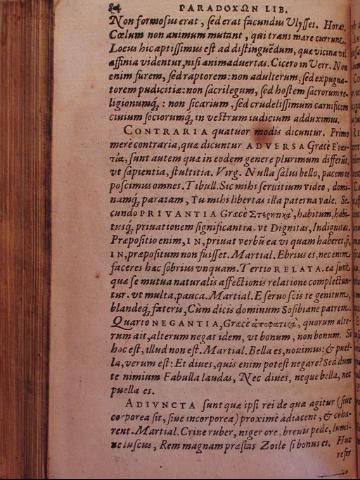 84 PARADOXΩN LIB.
Non formosus erat, sed erat facundus Ulysses. Horat.
Cœlum non animum mutant, qui trans mare currunt.
Locus hic aptissimus est ad distinguēdum, quæ vicina vel
affinia videntur, nisi animaduertas. Cicero in Verr. Non
enim furem, sed raptorem: non adulterum, sed expugna-
torem pudicitiæ: non sacrilegum, sed hostem sacrorum re-
ligionumq́;: non sicarium, sed crudelissimum carnificem
ciuium sociorumq́;, in vestrum iudicium adduximus.
CONTRARIA quatuor modis dicuntur. Primo
merè contraria, quæ dicuntur ADVERSA Græcè
sunt autem quæ in eodem genere plurimum differūt,
vt sapientia, stultitia. Virg. Nulla salus bello, pacem te
poscimus omnes. Tibull. Sic mihi seruitium video, domi-
namq́; paratam, Tu mihi libertas illa paterna vale. Se-
cundo PRIVANTIA Græcè Στερητικὰ, habitum, habi-
tusq́; priuationem significantia. vt Dignitas, Indignitas.
Præpositio enim, IN, priuat verbū ea vi quam haberet, si
IN, præpositum non fuisset. Martial. Ebrius es, nec enim
faceres hæc sobrius vnquam. Tertio RELATA. ea sunt,
quæ se mutua naturalis affectionis relatione complectun-
tur. vt multa, pauca. Martial. E seruo scis te genitum,
blandeq́; fateris, Cum dicis dominum Sosibiane patrem.
Quarto NEGANTIA, Græcè ἀποφατικὰ, quorum alte-
rum ait, alterum negat idem, vt bonum, non bonum. Si
hoc est, illud non est. Martial. Bella es, nouimus: & puel-
la, verum est: Et diues, quis enim potest negare? Sed dum
te nimium Fabulla laudas, Nec diues, neque bella, nec
puella es.
ADIVNCTA sunt quæ ipsi rei de qua agitur (siue
corporea sit, siue incorporea) proximè adiacent, & cohæ-
rent. Martial. Crine ruber, niger ore, breuis pede, lumi-
ne luscus, Rem magnam præstas Zoile si bonus es. Huc